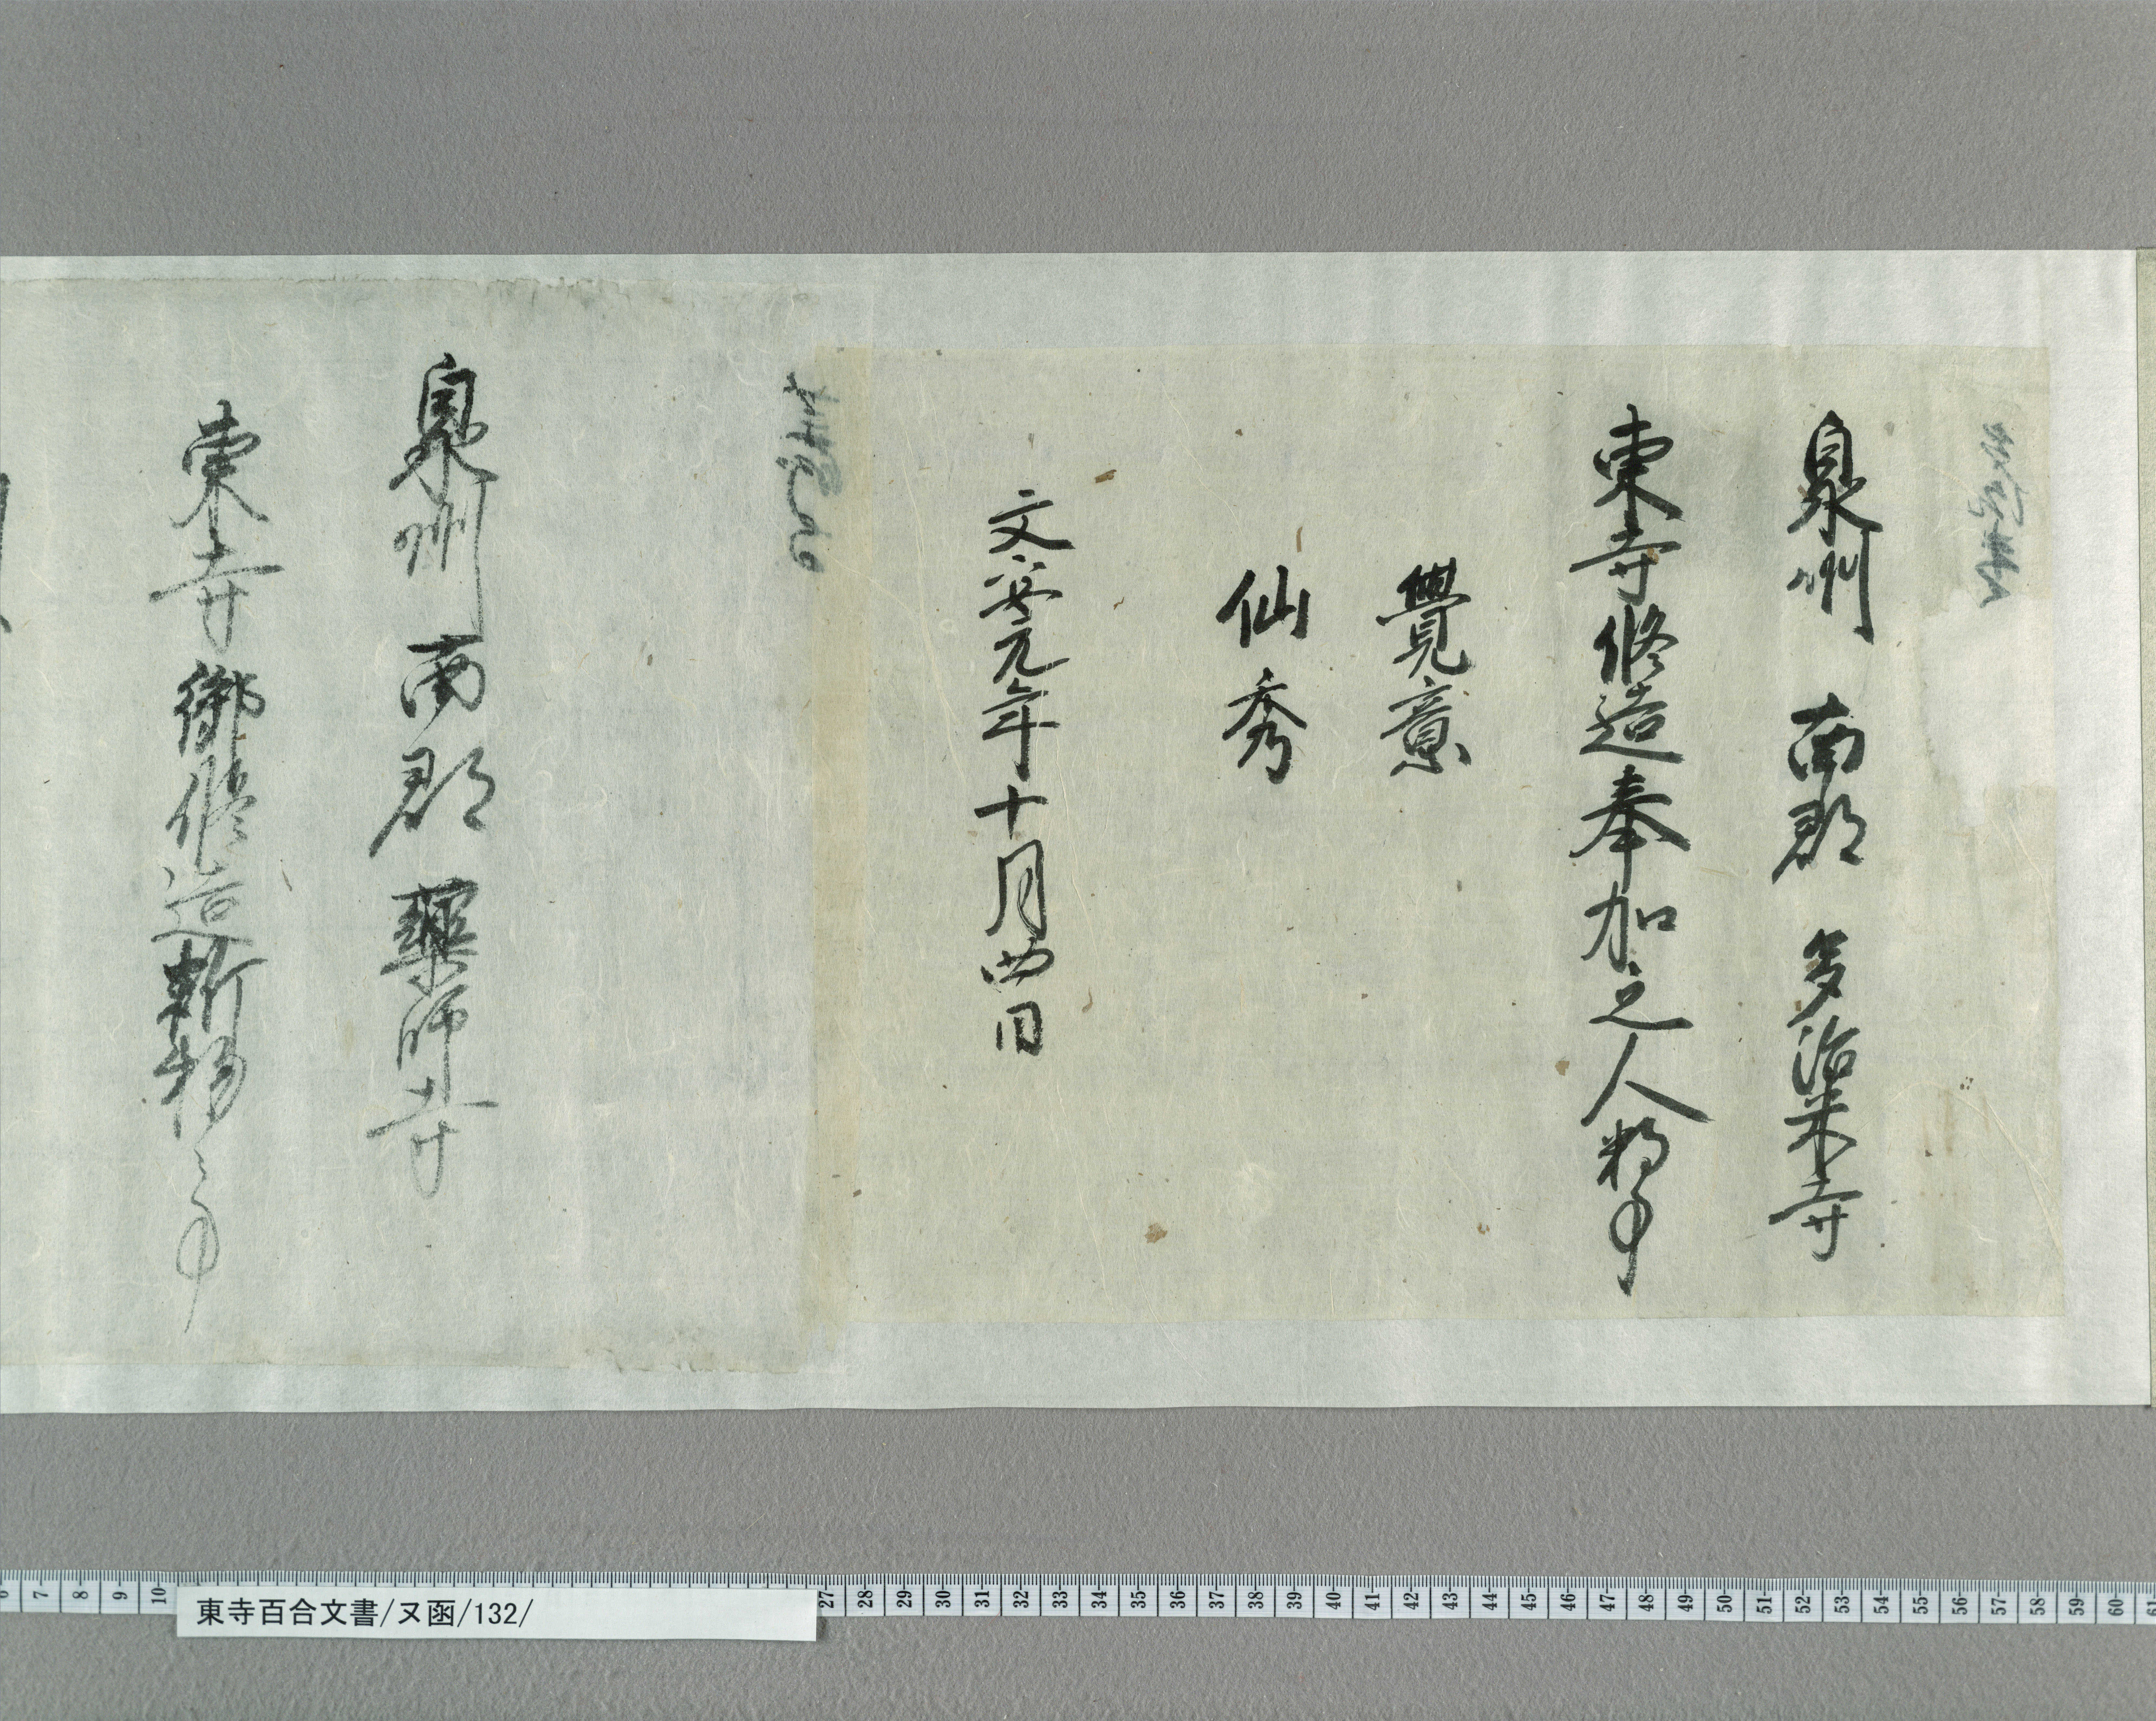 泉州 南郡 多治米寺
東寺修造奉加之人数事
覺意
仙秀
文安元年十月四日
泉州南郡 藥師寺
東寺御修造新物之事
東寺百合文書/ヌ函/132/
6 7 8 9 10 27 28 29 30 31 32 33 34 35 36 37 38 39 40 41 42 43 44 45 46 47 48 49 50 51 52 53 54 55 56 57 58 59 60 61